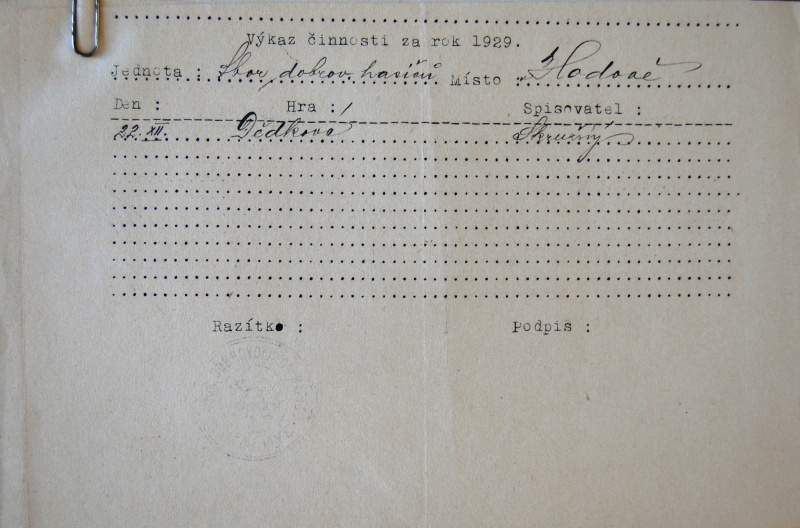 Výkaz činnosti za rok 1929.
Jednota : Sbor dobrov. hasičů Místo Hodově
Den : Hra : Spisovatel :
22. XII. Dědkova
Razítko : Podpis :